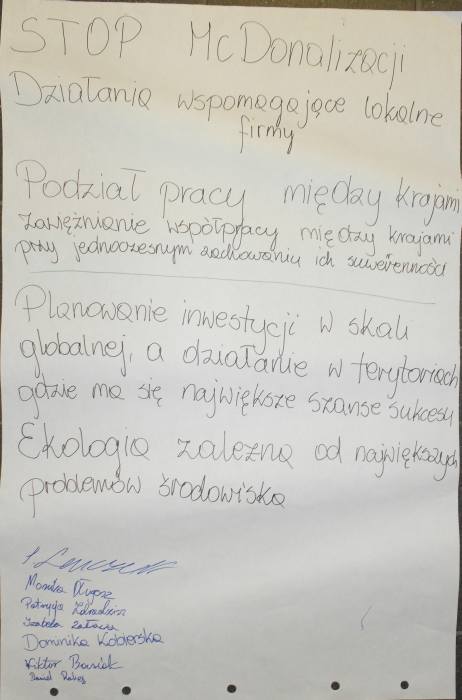 STOP McDonalizacji
Działania wspomagające lokalne
firmy
Podział pracy między krajami
zawężnianie współpracy między krajami
przy jednoczesnym zachowaniu ich suwerenności
Planowanie inwestycji w skali
globalnej, a działanie w terytoriach
gdzie ma się największe szanse sukcesu
Ekologia zależna od największych
problemów środowiska
Monika Długosz
Patrycja
Izabela
Dominika
Wiktor Basiak
Daniel